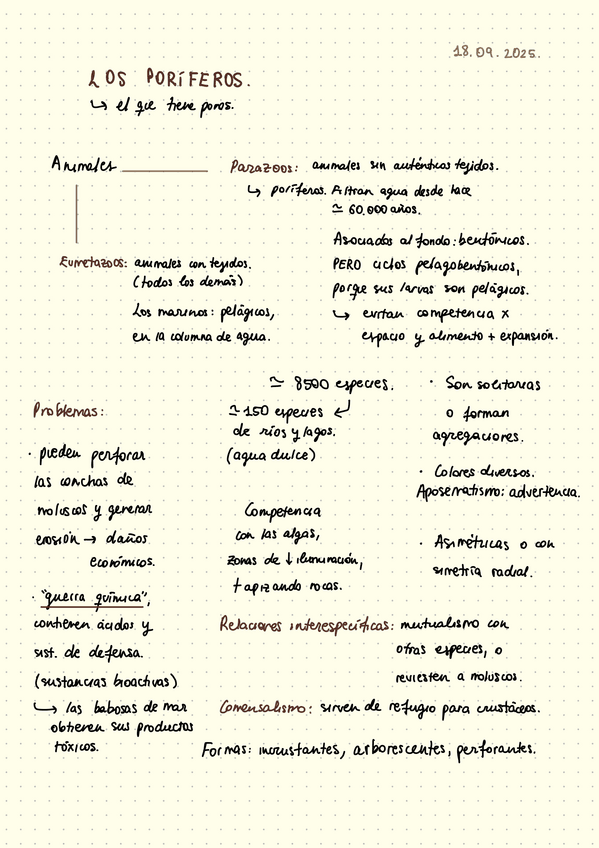 18.09.2025.
LOS PORÍFEROS.
↳ el que tiene poros.
Animales
Parazoos: animales sin auténticos tejidos.
↳ poríferos. Filtran agua desde hace
≃ 60.000 años.
Asociados al fondo: bentónicos.
PERO ciclos pelagobentónicos,
porque sus larvas son pelágicos.
↳ evitan competencia x
espacio y alimento + expansión.
Eumetazoos: animales con tejidos.
(todos los demás)
Los marinos: pelágicos,
en la columna de agua.
≃ 8500 especies.
≃ 150 especies ↲
de ríos y lagos.
(agua dulce)
Competencia
con las algas,
zonas de ↓ iluminación,
tapizando rocas.
· Son solitarias
o forman
agregaciones.
· Colores diversos.
Aposematismo: advertencia.
· Asimétricas o con
simetría radial.
Problemas:
· pueden perforar
las conchas de
moluscos y generar
erosión → daños
económicos.
· "guerra química",
contienen ácidos y
sist. de defensa.
(sustancias bioactivas)
↳ las babosas de mar
obtienen sus productos
tóxicos.
Relaciones interespecíficas: mutualismo con
otras especies, o
revisten a moluscos.
Comensalismo: sirven de refugio para crustáceos.
Formas: incrustantes, arborescentes, perforantes.